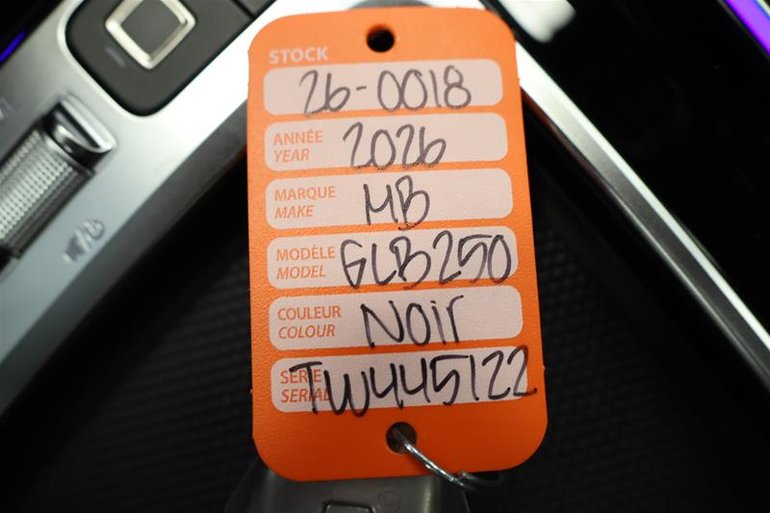 STOCK
26-0018
ANNÉE
YEAR
2026
MARQUE
MAKE
MB
MODÈLE
MODEL
GLB250
COULEUR
COLOUR
Noir
SÉRIE
SERIAL
TW445122